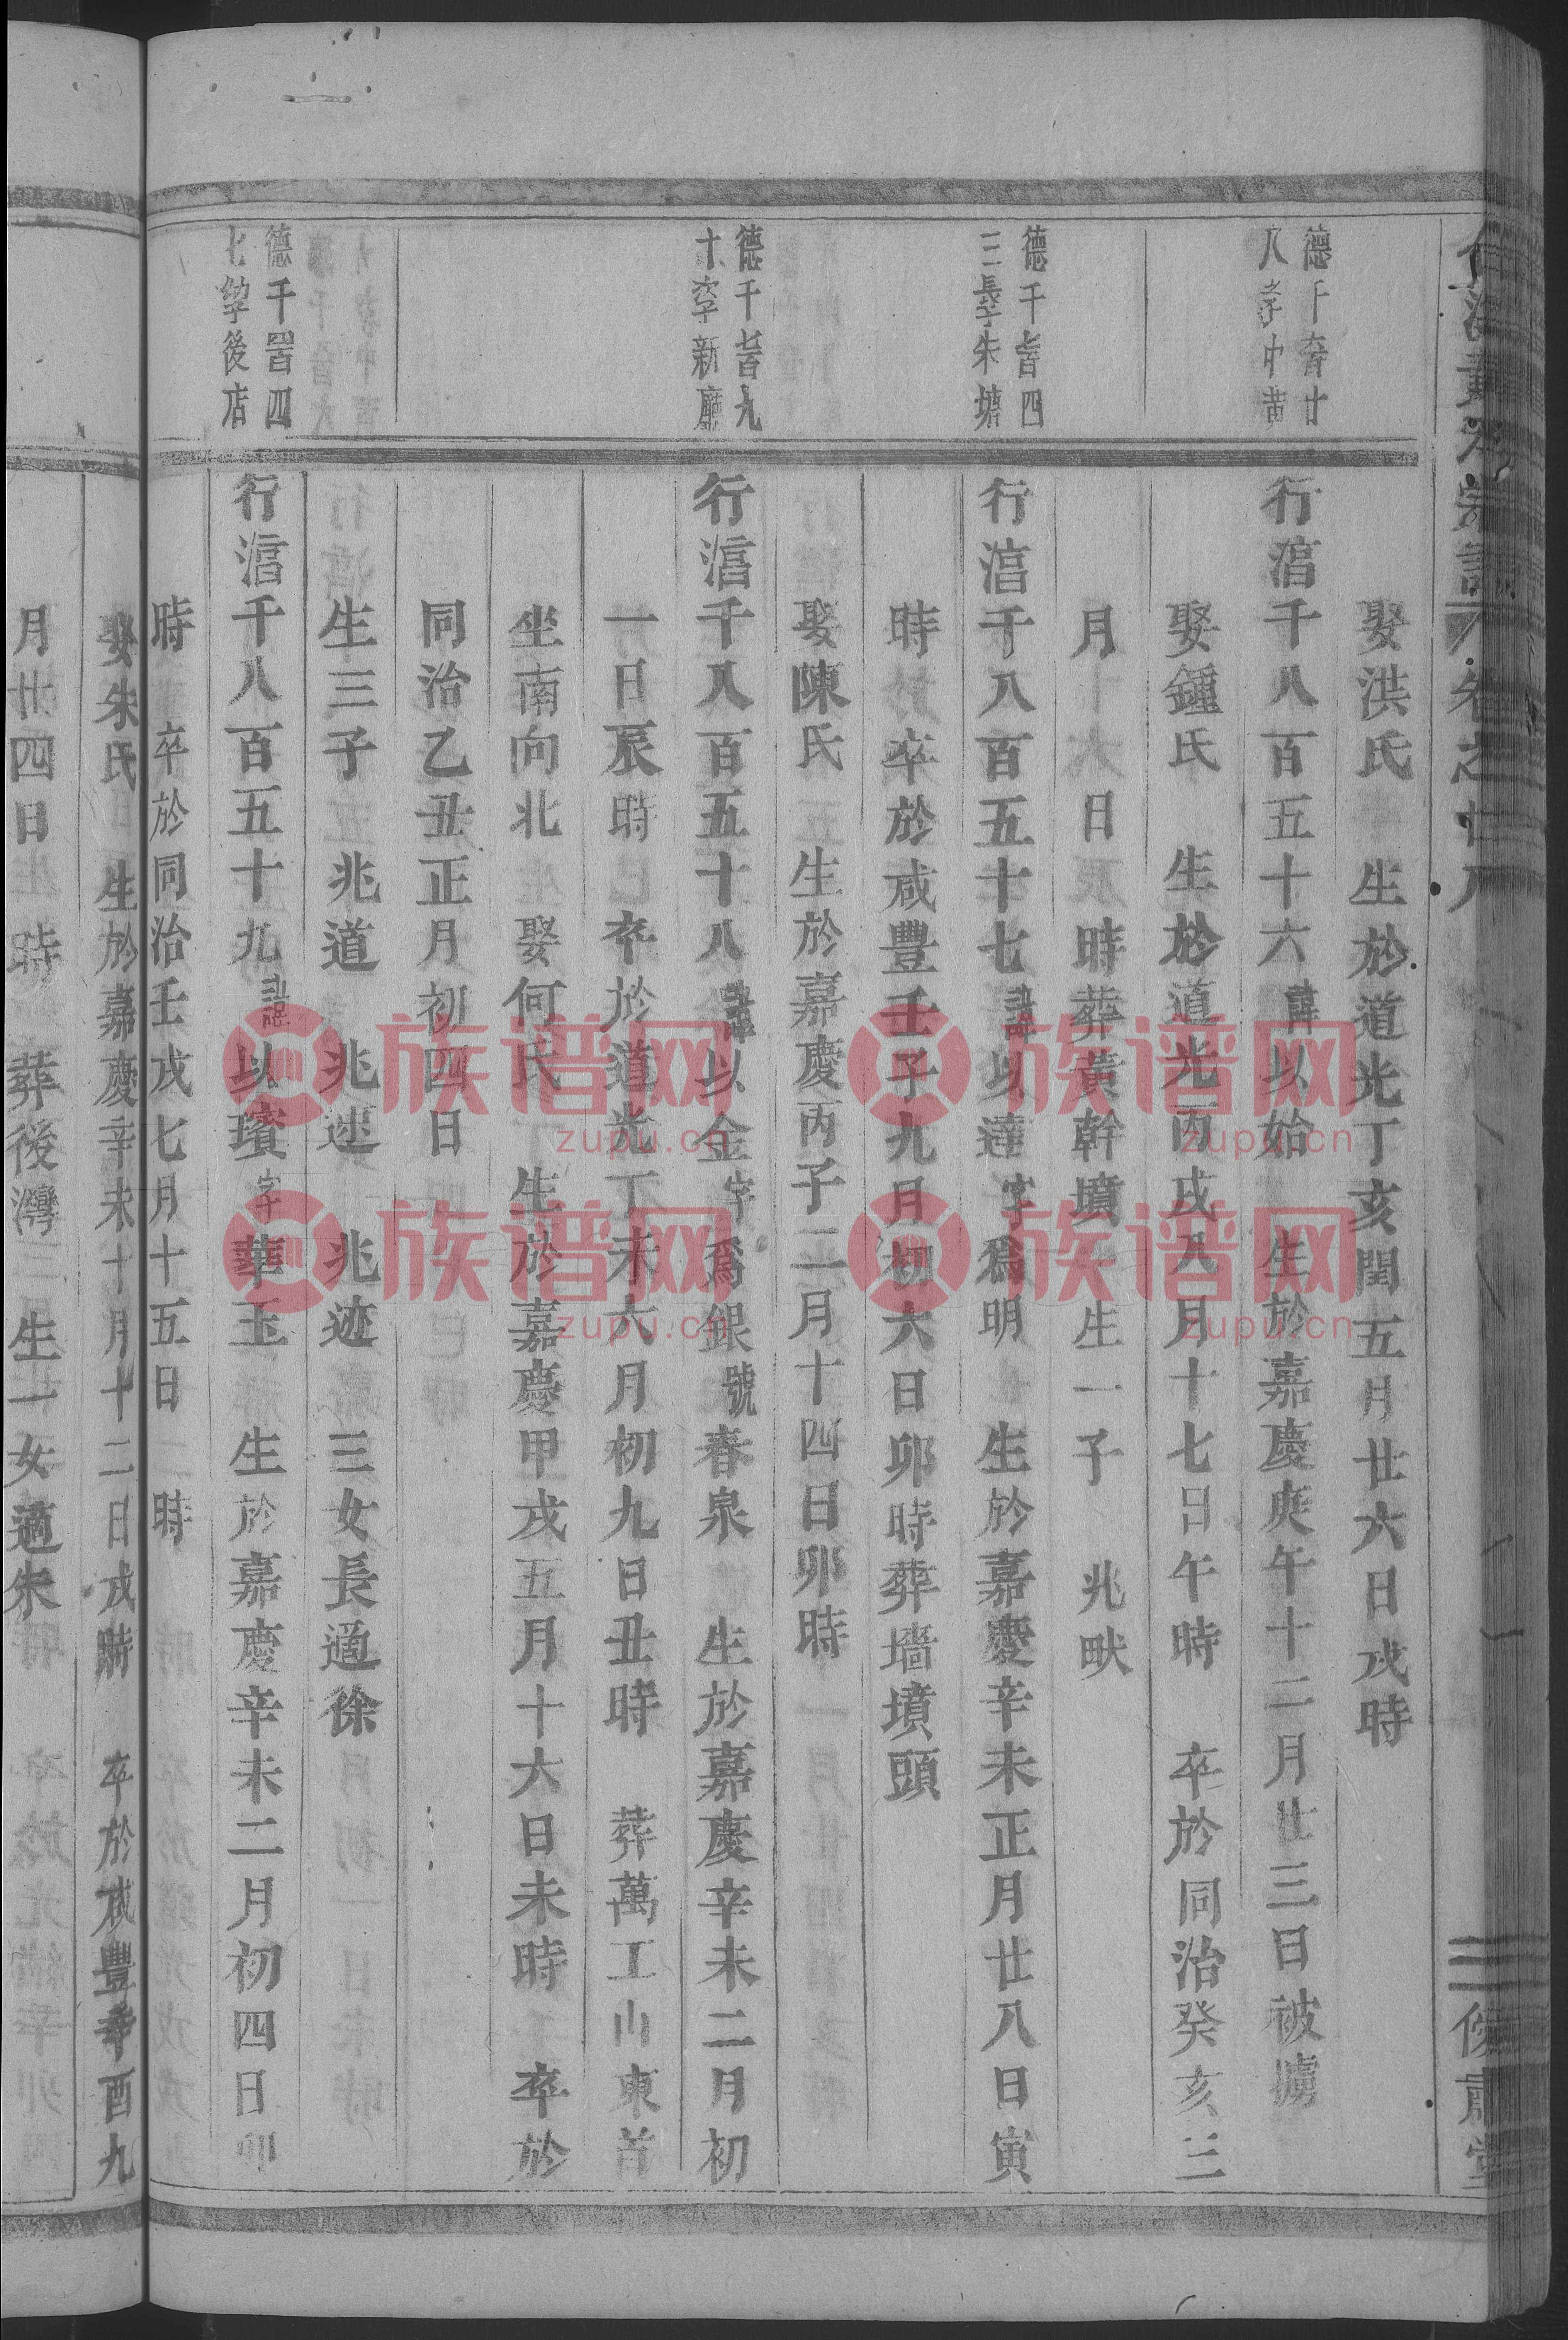 黃氏宗譜 卷之廿八
娶洪氏 生於道光丁亥閏五月廿六日戌時
德千 廿
八 中黃
行湻千八百五十六諱以始 生於嘉慶庚午十二月廿三日被擄
娶鍾氏 生於道光丙戌八月十七日午時 卒於同治癸亥三
月十六日辰時葬黃幹墳 生一子 兆畎
德千 四
三 朱塘
行湻千八百五十七諱以達字為明 生於嘉慶辛未正月廿八日寅
時 卒於咸豐壬子九月初六日卯時葬墻墳頭
娶陳氏 生於嘉慶丙子二月十四日卯時
德千 九
十 新廳
行湻千八百五十八諱以金字為銀號春泉 生於嘉慶辛未二月初
一日辰時 卒於道光丁未六月初九日丑時 葬萬工山東首
坐南向北 娶何氏 生於嘉慶甲戌五月十六日未時 卒於
同治乙丑正月初四日
生三子 兆道 兆逑 兆迹 三女長適徐
德千 四
七 後店
行湻千八百五十九諱以璸字華玉 生於嘉慶辛未二月初四日卯
時 卒於同治壬戌七月十五日 時
娶朱氏 生於嘉慶辛未十月十二日戌時 卒於咸豐辛酉九
月廿四日 時 葬後灣 生一女適朱
zupu.cn
族谱网
zupu.cn
族谱网
zupu.cn
族谱网
zupu.cn
族谱网